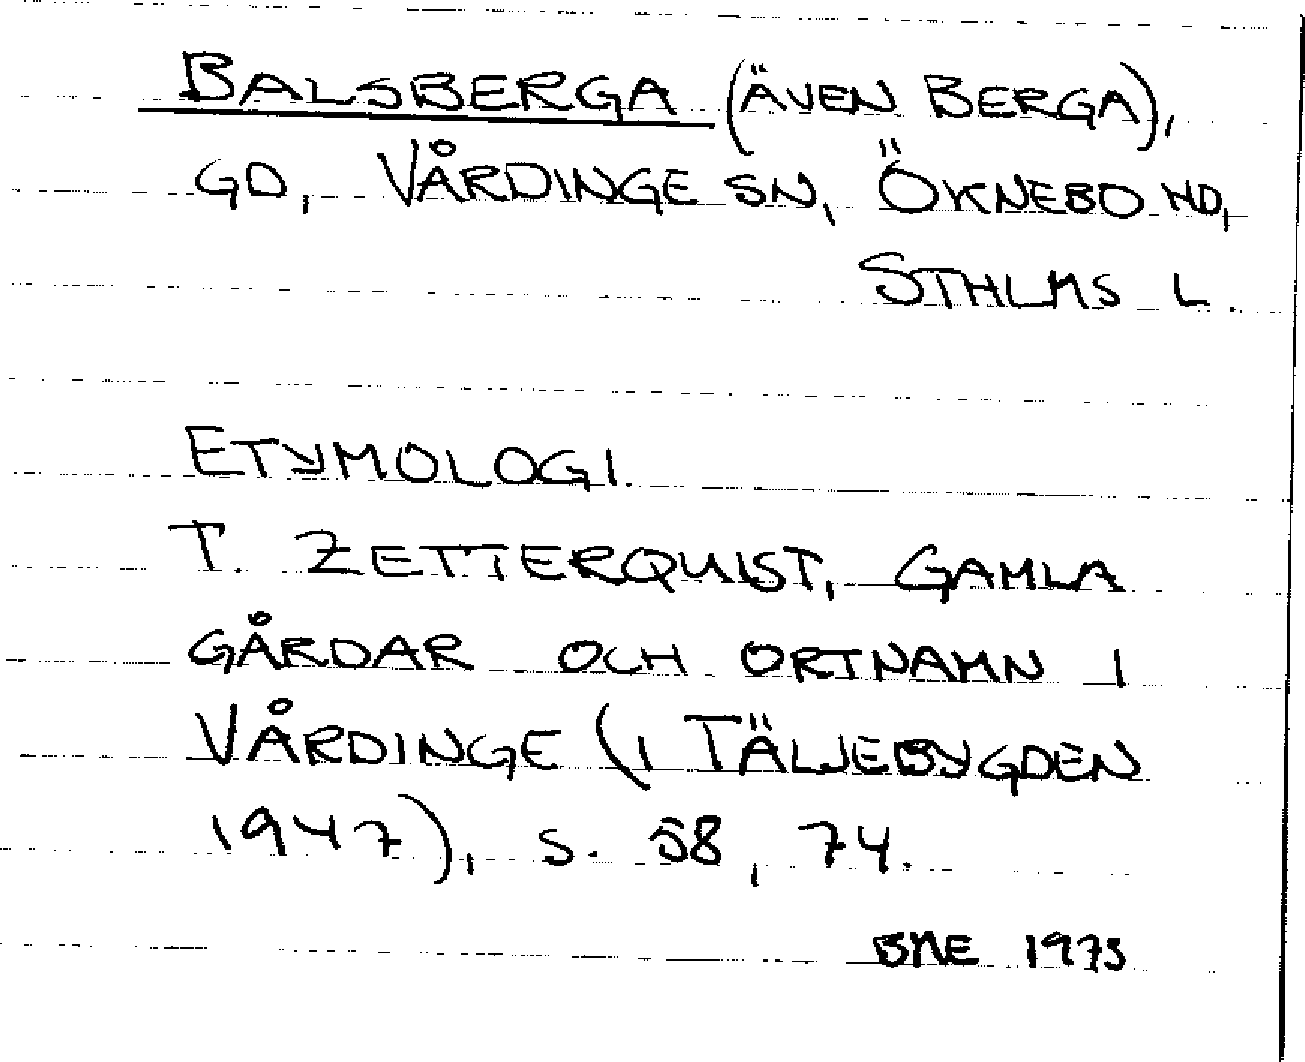 BALSBERGA (ÄVEN BERGA),
GD, VÅRDINGE SN, ÖKNEBO HD,
STHLMS L.
ETYMOLOGI.
T. ZETTERQUIST, GAMLA
GÅRDAR OCH ORTNAMN I
VÅRDINGE (I TÄLJEBYGDEN
1947), S. 58, 74.
BME 1975